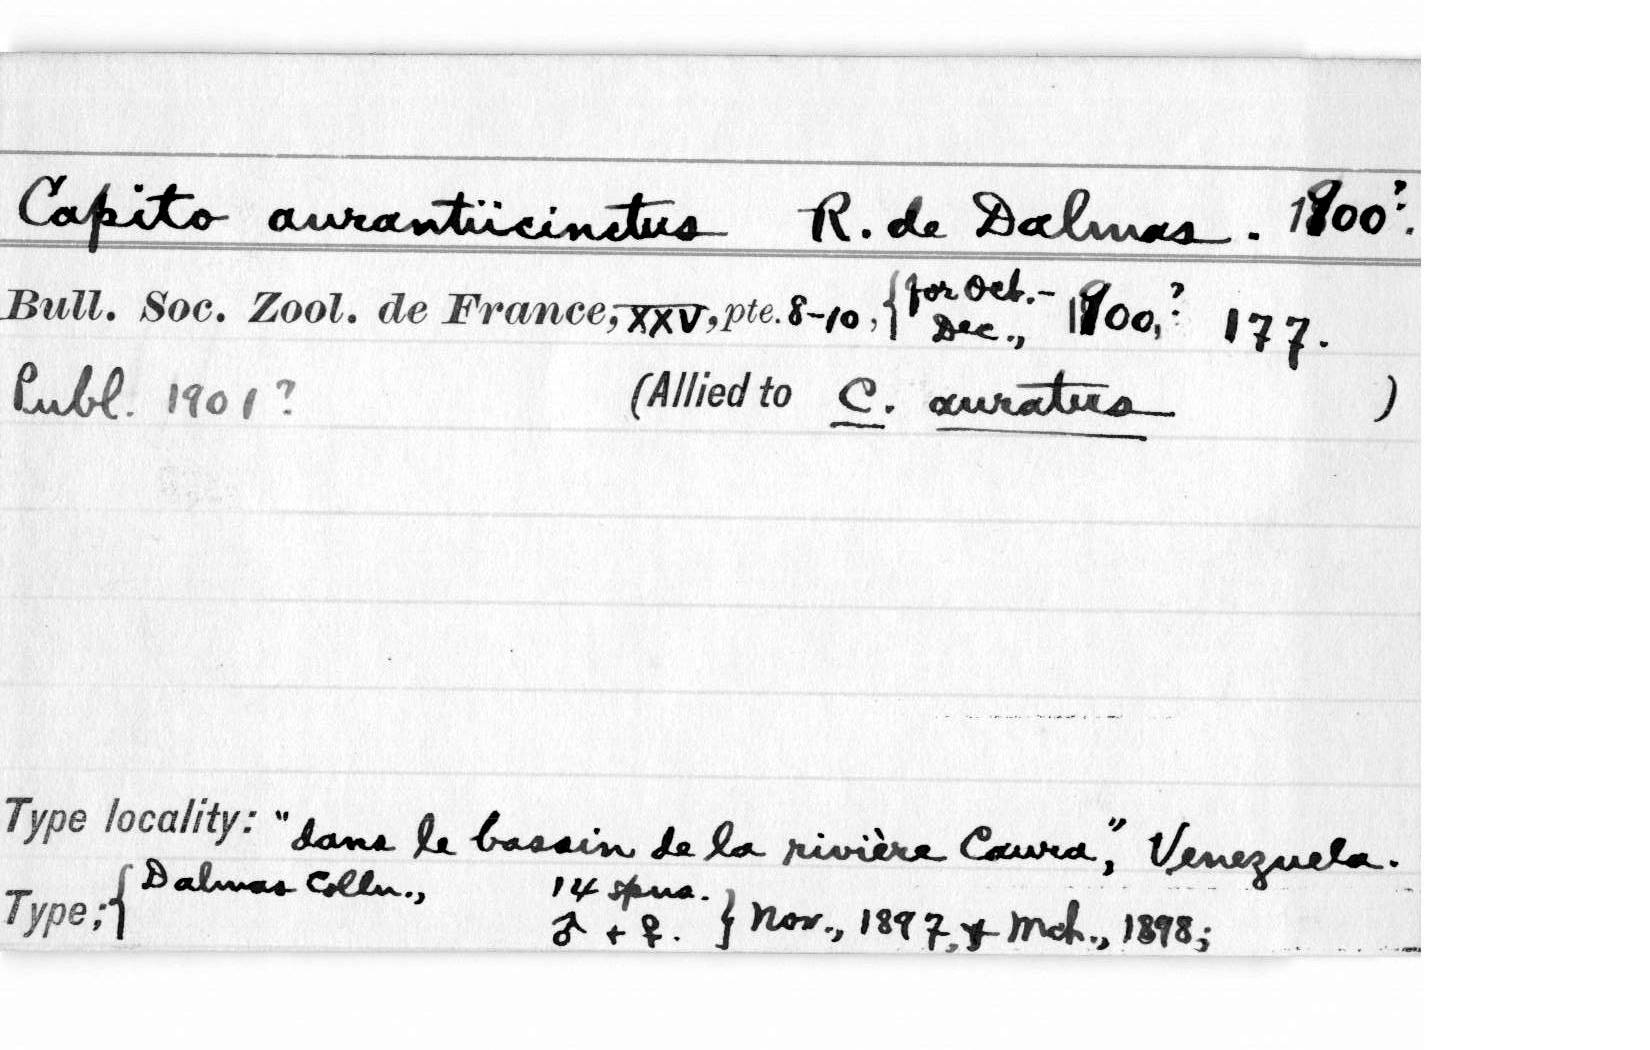 Capito aurantiicinctus R. de Dalmas. 1900?.
Bull. Soc. Zool. de France, XXV, pte. 8-10, {for Oct.- Dec., 1900,? 177.
Publ. 1901? (Allied to C. auratus )
Type locality: "dans le bassin de la rivière Caura," Venezuela.
Type; { Dalmas Colln., 14 spns. ♂ + ♀. } Nov., 1897, & Mch., 1898;